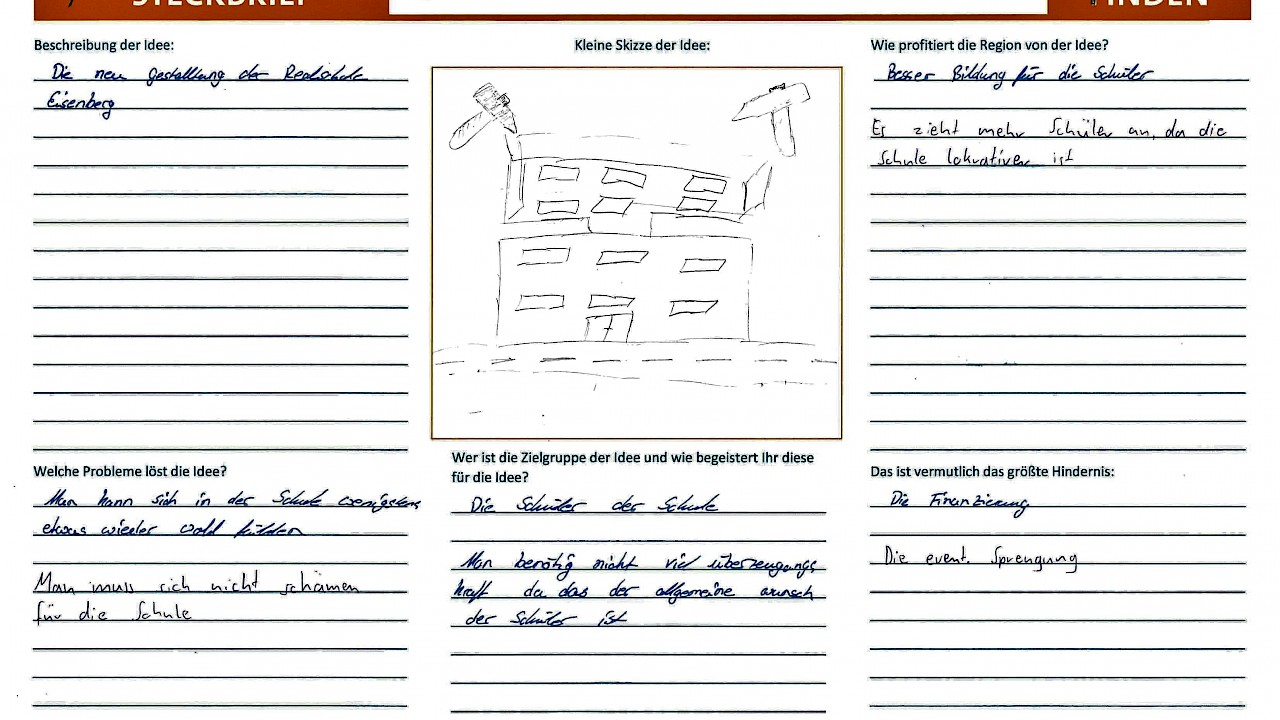 STECKBRIEF
FINDEN
Beschreibung der Idee:
Die neu gestalltung der Realschule
Eisenberg
Kleine Skizze der Idee:
Wie profitiert die Region von der Idee?
Besser Bildung für die Schüler
Es zieht mehr Schüler an, da die
Schule lokrativer ist
Welche Probleme löst die Idee?
Man kann sich in der Schule wenigstens
etwas wieder wohl fühlen
Man muss sich nicht schämen
für die Schule
Wer ist die Zielgruppe der Idee und wie begeistert Ihr diese
für die Idee?
Die Schüler der Schule
Man benötig nicht viel überzeugungs
kraft da das der allgemeine wunsch
der Schüler ist
Das ist vermutlich das größte Hindernis:
Die Finanzierung
Die event. Sprengung